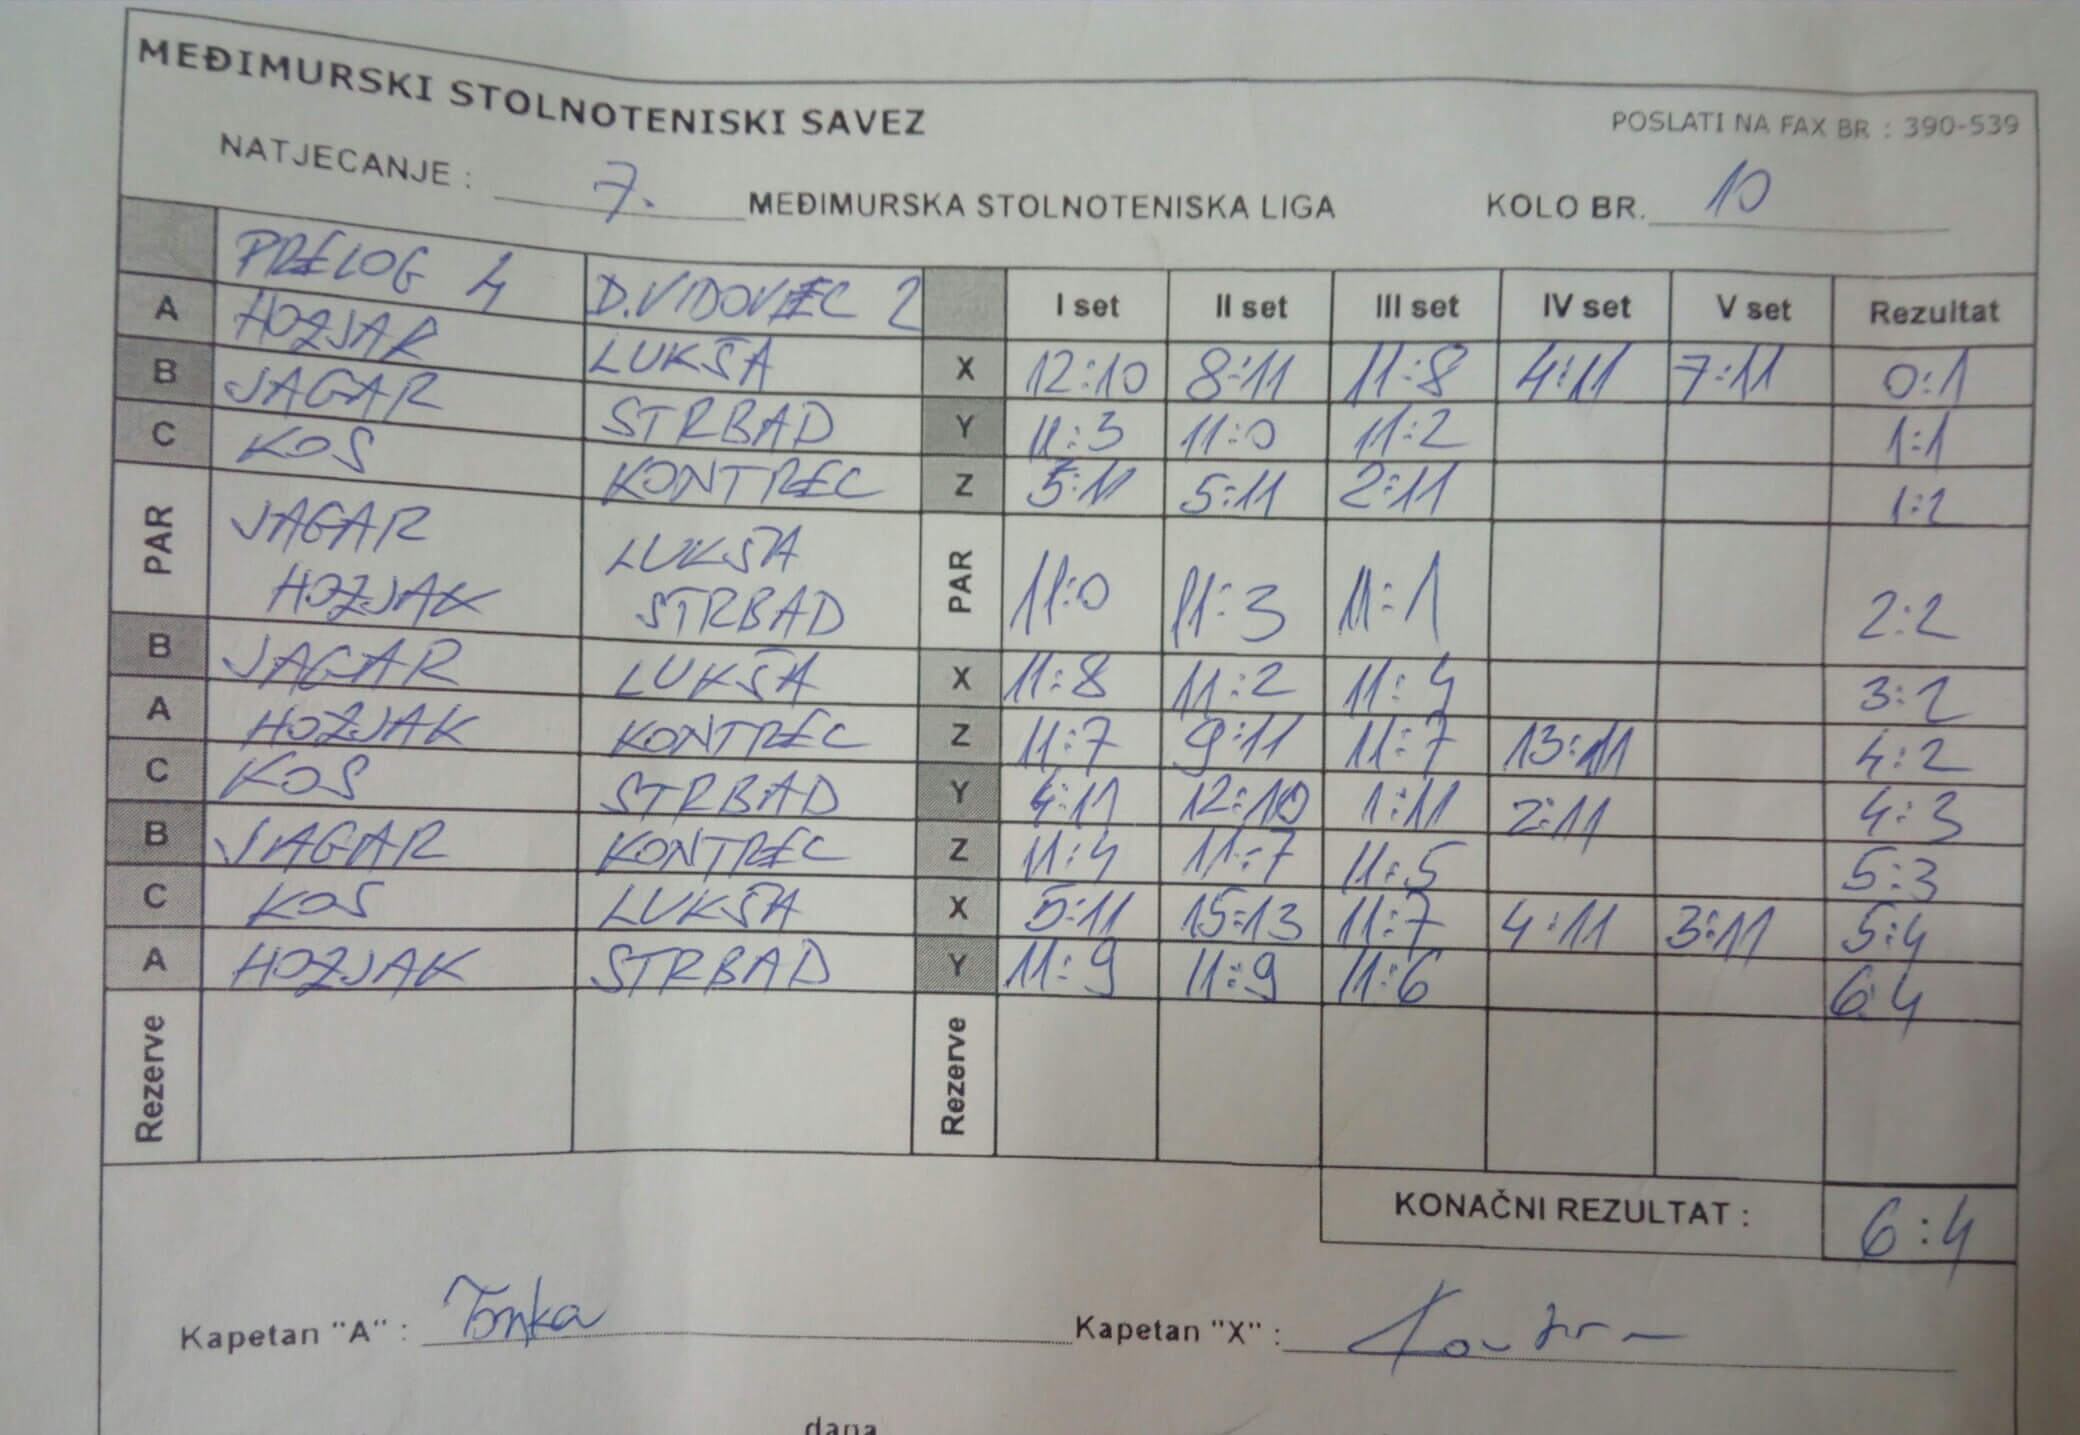 MEĐIMURSKI STOLNOTENISKI SAVEZ
POSLATI NA FAX BR : 390-539
NATJECANJE : 7. MEĐIMURSKA STOLNOTENISKA LIGA KOLO BR. 10
PRELOG 4 D.VIDOVEC 2 I set II set III set IV set V set Rezultat
A HOZJAK LUKŠA X 12:10 8:11 11:8 4:11 7:11 0:1
B JAGAR STRBAD Y 11:3 11:0 11:2 1:1
C KOS KONTREC Z 5:11 5:11 2:11 1:2
PAR JAGAR LUKŠA PAR 11:0 11:3 11:1 2:2
HOZJAK STRBAD
B JAGAR LUKŠA X 11:8 11:2 11:4 3:2
A HOZJAK KONTREC Z 11:7 9:11 11:7 13:11 4:2
C KOS STRBAD Y 4:11 12:10 1:11 2:11 4:3
B JAGAR KONTREC Z 11:4 11:7 11:5 5:3
C KOS LUKŠA X 5:11 15:13 11:7 4:11 3:11 5:4
A HOZJAK STRBAD Y 11:9 11:9 11:6 6:4
Rezerve Rezerve
KONAČNI REZULTAT : 6:4
Kapetan "A" : Tonka Kapetan "X" :
dana